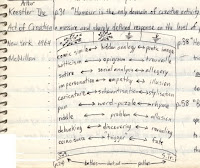 Artur
Koestler The p31 "Humour is the only domain of creative activity
Act of Creation a massive and sharply defined response on the level of p
New York 1964
McMillan
comic simile ↔ hidden analogy ↔ poetic image
witticism ↔ epigram ↔ trouvaille
satire ↔ social analysis ↔ allegory
impersonation ↔ empathy ↔ illusion
caricature ↔ schematization ↔ stylisation
pun ↔ word-puzzle ↔ rhyme
riddle ↔ problem ↔ allusion
debunking ↔ discovering ↔ revealing
coincidence ↔ trigger ↔ fate
p58 "
p58 "B